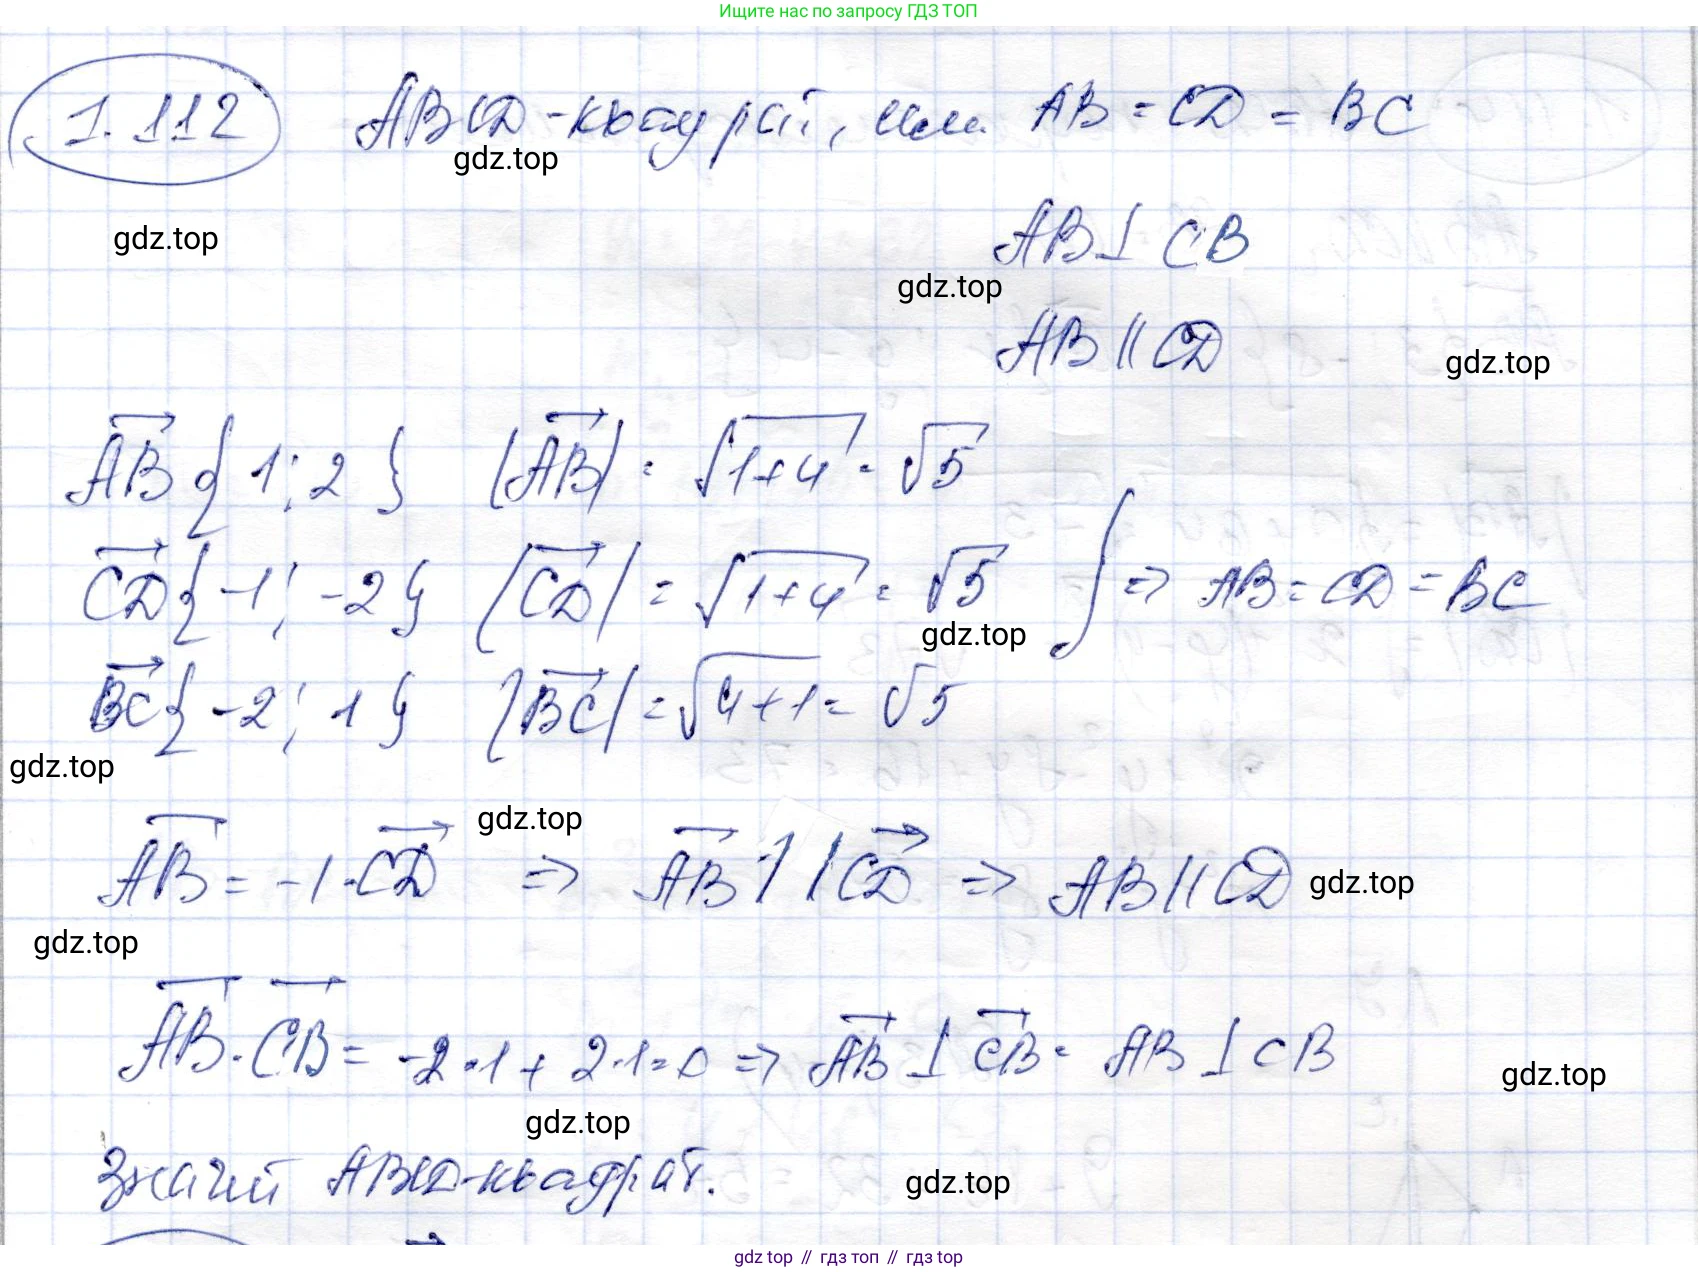 Ищите нас по запросу ГДЗ ТОП
1.112 ABCD-квадрат, если AB = CD = BC
gdz.top
AB ⊥ CB
gdz.top
gdz.top
AB || CD
gdz.top
AB{1; 2} |AB| = √1+4 = √5
CD{-1; -2} |CD| = √1+4 = √5 } => AB = CD = BC
gdz.top
BC{-2; 1} |BC| = √4+1 = √5
gdz.top
gdz.top
AB = -1·CD => AB ↑↓ CD => AB || CD
gdz.top
gdz.top
AB·CB = -2·1 + 2·1 = 0 => AB ⊥ CB = AB ⊥ CB
gdz.top
gdz.top
Значит ABCD-квадрат.
gdz.top
gdz top // гдз топ // гдз top